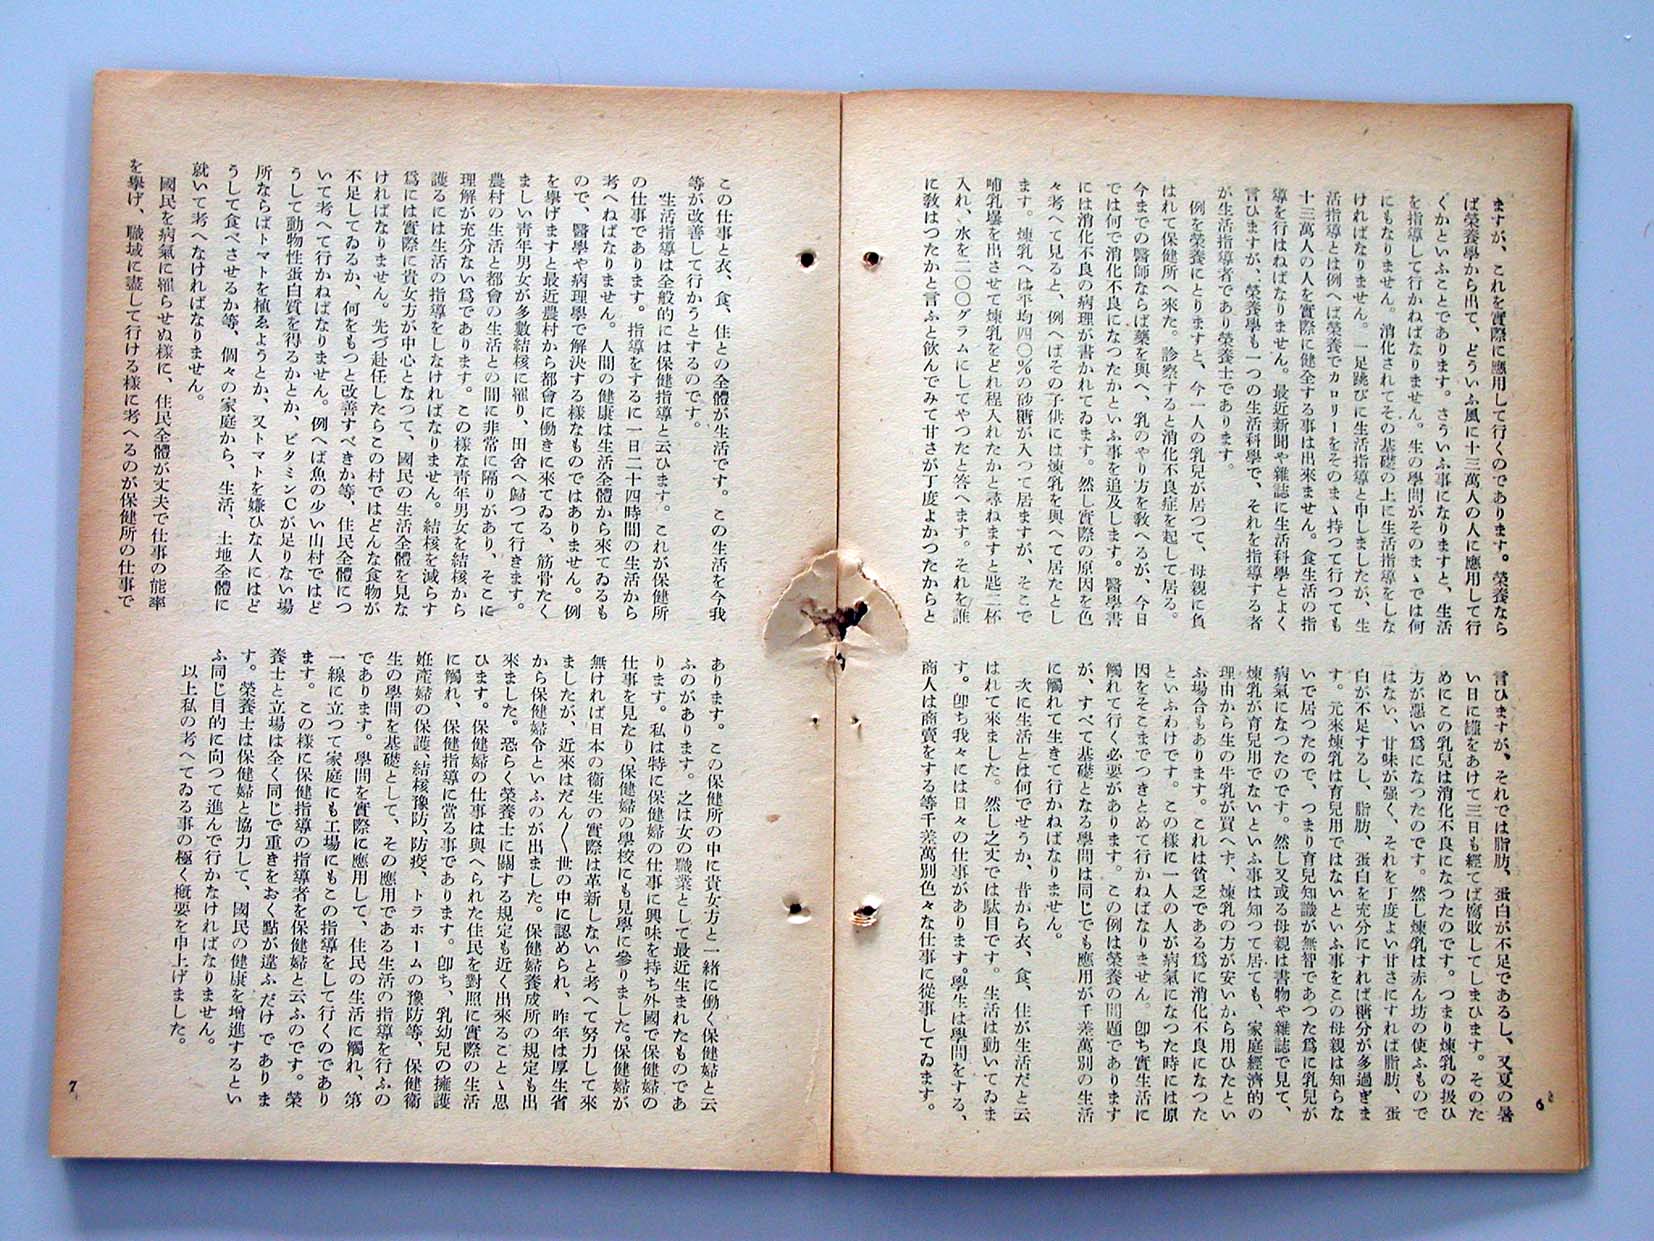 ますが、これを實際に應用して行くのであります。榮養なら
ば榮養學から出て、どういふ風に十三萬人の人に應用して行
くかといふことであります。さういふ事になりますと、生活
を指導して行かねばなりません。生の學問がそのまゝでは何
にもなりません。消化されてその基礎の上に生活指導をしな
ければなりません。一足跳びに生活指導と申しましたが、生
活指導とは例へば榮養でカロリーをそのまゝ持つて行つても
十三萬人の人を實際に健全する事は出來ません。食生活の指
導を行はねばなりません。最近新聞や雜誌に生活科學とよく
言ひますが、榮養學も一つの生活科學で、それを指導する者
が生活指導者であり榮養士であります。
例を榮養にとりますと、今一人の乳兒が居つて、母親に負
はれて保健所へ來た。診察すると消化不良症を起して居る。
今までの醫師ならば藥を與へ、乳のやり方を敎へるが、今日
では何で消化不良になつたかといふ事を追及します。醫學書
には消化不良の病理が書かれてゐます。然し實際の原因を色
々考へて見ると、例へばその子供には煉乳を與へて居たとし
ます。煉乳へは平均四〇％の砂糖が入つて居ますが、そこで
哺乳壜を出させて煉乳をどれ程入れたかと尋ねますと匙二杯
入れ、水を二〇〇グラムにしてやつたと答へます。それを誰
に敎はつたかと言ふと飲んでみて甘さが丁度よかつたからと
言ひますが、それでは脂肪、蛋白が不足であるし、又夏の暑
い日に罐をあけて三日も經てば腐敗してしまひます。そのた
めにこの乳兒は消化不良になつたのです。つまり煉乳の扱ひ
方が惡い爲になつたのです。然し煉乳は赤ん坊の使ふもので
はない、甘味が強く、それを丁度よい甘さにすれば脂肪、蛋
白が不足するし、脂肪、蛋白を充分にすれば糖分が多過ぎま
す。元來煉乳は育兒用ではないといふ事をこの母親は知らな
いで居つたので、つまり育兒知識が無智であつた爲に乳兒が
病氣になつたのです。然し又或る母親は書物や雜誌で見て、
煉乳が育兒用でないといふ事は知つて居ても、家庭經濟的の
理由から生の牛乳が買へず、煉乳の方が安いから用ひたとい
ふ場合もあります。これは貧乏である爲に消化不良になつた
といふわけです。この樣に一人の人が病氣になつた時には原
因をそこまでつきとめて行かねばなりません。卽ち實生活に
觸れて行く必要があります。この例は榮養の問題であります
が、すべて基礎となる學問は同じでも應用が千差萬別の生活
に觸れて生きて行かねばなりません。
次に生活とは何でせうか、昔から衣、食、住が生活だと云
はれて來ました。然し之丈では駄目です。生活は動いてゐま
す。卽ち我々には日々の仕事があります。學生は學問をする、
商人は商賣をする等千差萬別色々な仕事に從事してゐます。
6
この仕事と衣、食、住との全體が生活です。この生活を今我
等が改善して行かうとするのです。
生活指導は全般的には保健指導と云ひます。これが保健所
の仕事であります。指導をするに一日二十四時間の生活から
考へねばなりません。人間の健康は生活全體から來てゐるも
ので、醫學や病理學で解決する樣なものではありません。例
を擧げますと最近農村から都會に働きに來てゐる、筋骨たく
ましい靑年男女が多數結核に罹り、田舍へ歸つて行きます。
農村の生活と都會の生活との間に非常に隔りがあり、そこに
理解が充分ない爲であります。この樣な靑年男女を結核から
護るには生活の指導をしなければなりません。結核を減らす
爲には實際に貴女方が中心となつて、國民の生活全體を見な
ければなりません。先づ赴任したらこの村ではどんな食物が
不足してゐるか、何をもつと改善すべきか等、住民全體につ
いて考へて行かねばなりません。例へば魚の少い山村ではど
うして動物性蛋白質を得るかとか、ビタミンCが足りない場
所ならばトマトを植ゑようとか、又トマトを嫌ひな人にはど
うして食べさせるか等、個々の家庭から、生活、土地全體に
就いて考へなければなりません。
國民を病氣に罹らせぬ樣に、住民全體が丈夫で仕事の能率
を擧げ、職域に盡して行ける樣に考へるのが保健所の仕事で
あります。この保健所の中に貴女方と一緒に働く保健婦と云
ふのがあります。之は女の職業として最近生まれたものであ
ります。私は特に保健婦の仕事に興味を持ち外國で保健婦の
仕事を見たり、保健婦の學校にも見學に參りました。保健婦が
無ければ日本の衞生の實際は革新しないと考へて努力して來
ましたが、近來はだん〱世の中に認められ、昨年は厚生省
から保健婦令といふのが出ました。保健婦養成所の規定も出
來ました。恐らく榮養士に關する規定も近く出來ることゝ思
ひます。保健婦の仕事は與へられた住民を對照に實際の生活
に觸れ、保健指導に當る事であります。卽ち、乳幼兒の擁護
姙產婦の保護、結核豫防、防疫、トラホームの豫防等、保健衞
生の學問を基礎として、その應用である生活の指導を行ふの
であります。學問を實際に應用して、住民の生活に觸れ、第
一線に立つて家庭にも工場にもこの指導をして行くのであり
ます。この樣に保健指導の指導者を保健婦と云ふのです。榮
養士と立場は全く同じで重きをおく點が違ふだけでありま
す。榮養士は保健婦と協力して、國民の健康を增進するとい
ふ同じ目的に向つて進んで行かなければなりません。
以上私の考へてゐる事の極く槪要を申上げました。
7